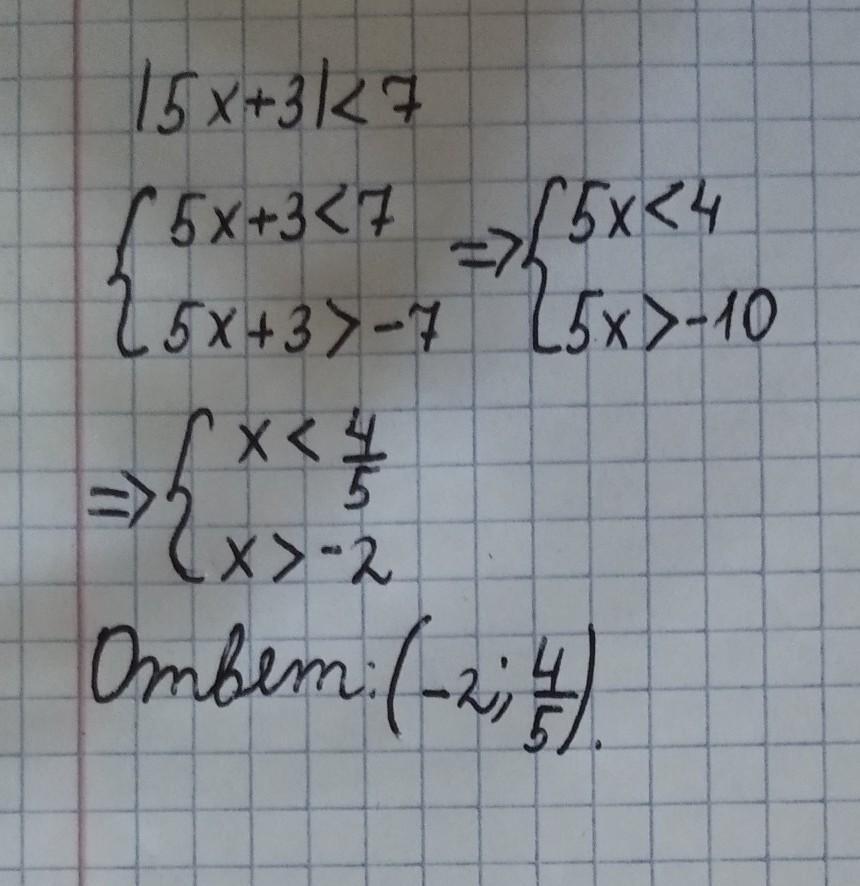 |5x+3|<7
{5x+3<7 => {5x<4
{5x+3>-7 {5x>-10
=> {x<4/5
{x>-2
Ответ: (-2; 4/5).